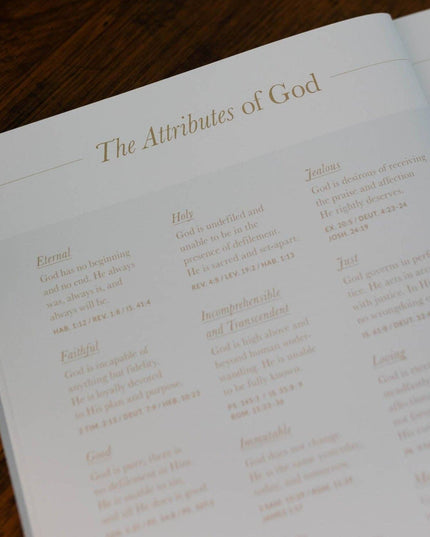 The Attributes of God
Eternal
God has no beginning
and no end. He always
was, always is, and
always will be.
HAB. 1:12 / REV. 1:8 / IS. 41:4
Faithful
God is incapable of
anything but fidelity.
He is loyally devoted
to His plan and purpose.
2 TIM. 2:13 / DEUT. 7:9 / HEB. 10:23
Good
God is pure, there is
no defilement in Him.
He is unable to sin,
and all He does is good.
Holy
God is undefiled and
unable to be in the
presence of defilement.
He is sacred and set-apart.
REV. 4:9 / LEV. 19:2 / HAB. 1:13
Incomprehensible
and Transcendent
God is high above and
beyond human under-
standing. He is unable
to be fully known.
PS. 145:3 / IS. 55:8-9
ROM. 11:33-36
Immutable
God does not change.
He is the same yesterday,
today, and tomorrow.
Jealous
God is desirous of receiving
the praise and affection
He rightly deserves.
EX. 20:5 / DEUT. 4:23-24
JOSH. 24:19
Just
God governs in
He acts in
with justice. In
no wrongdoing
Loving
God is